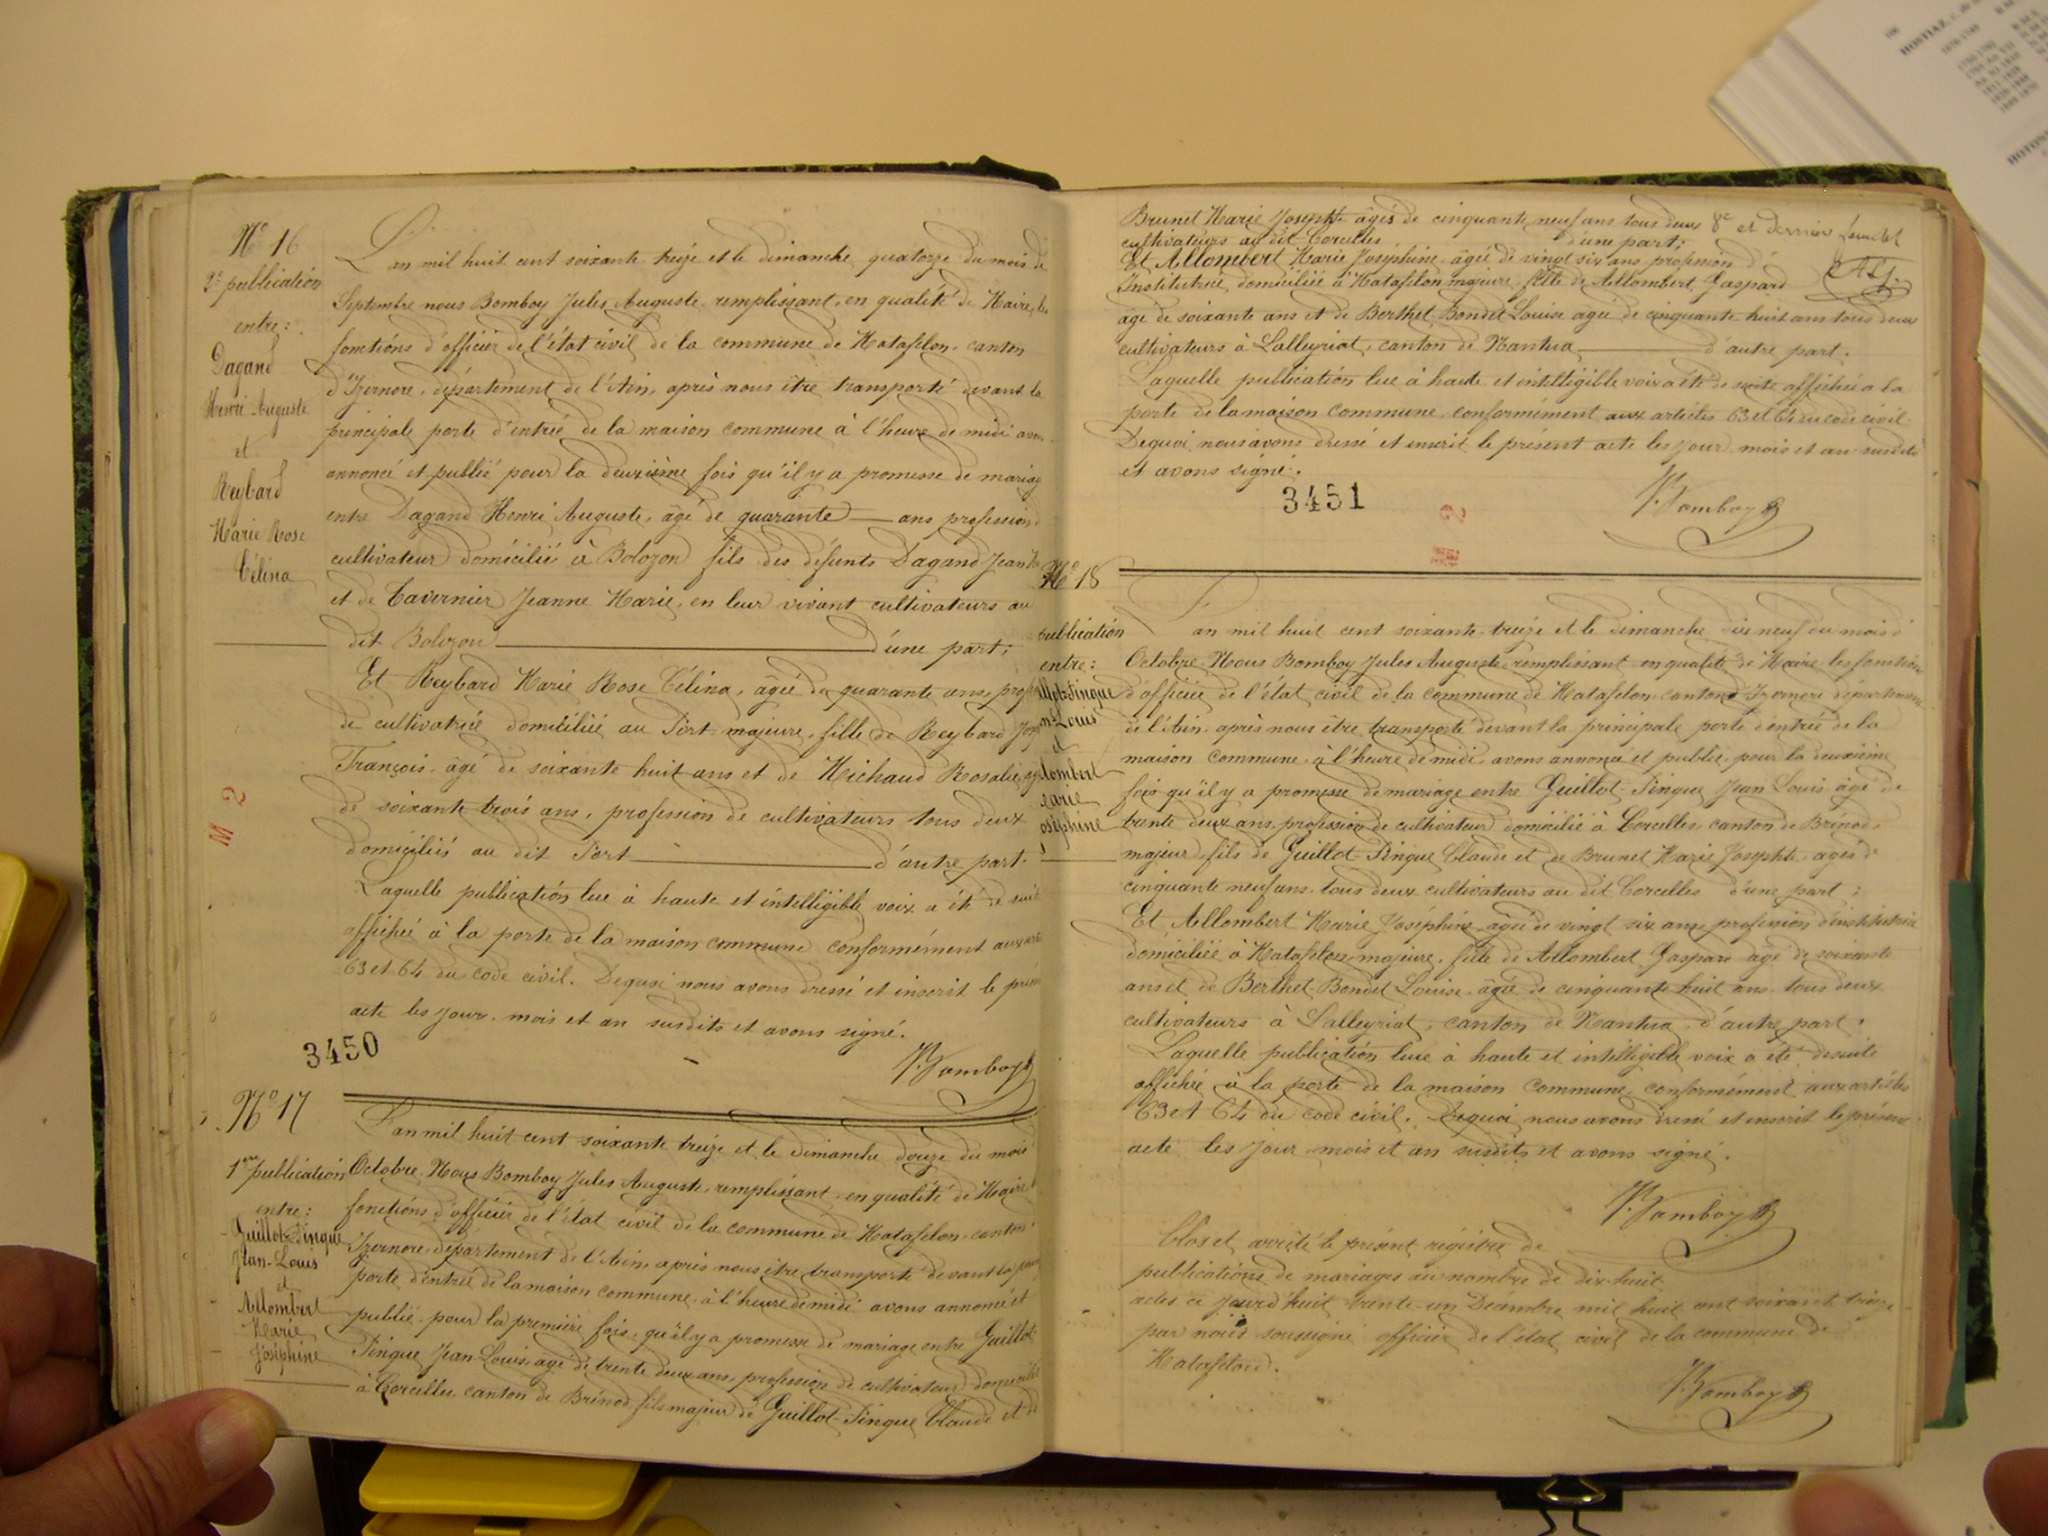 No 16
2e publication
entre:
Dagand
Henri Auguste
et
Reybard
Marie Rose
Célina
L'an mil huit cent soixante treize et le dimanche quatorze du mois de
Septembre nous Bomboy Jules Auguste remplissant en qualité de Maire, les
fonctions d'officier de l'état civil de la commune de Matafelon, canton
d'Izernore, département de l'Ain, après nous être transporté devant la
principale porte d'entrée de la maison commune à l'heure de midi avons
annoncé et publié pour la deuxième fois qu'il y a promesse de mariage
entre Dagand Henri Auguste, âgé de quarante ans profession
cultivateur domicilié à Bolozon fils des défunts Dagand Jean
et de Tavernier Jeanne Marie, en leur vivant cultivateurs au
dit Bolozon d'une part;
Et Reybard Marie Rose Célina, âgée de quarante ans, prof
de cultivatrice domiciliée au Port majeure, fille de Reybard
François, âgé de soixante huit ans et de Michaud Rosalie,
de soixante trois ans, profession de cultivateurs tous deux
domiciliés au dit Port d'autre part.
Laquelle publication lue à haute et intelligible voix a été de suite
affichée à la porte de la maison commune conformément aux
63 et 64 du code civil. Dequoi nous avons dressé et inscrit le
acte les jour, mois et an susdits et avons signé.
3450
Bomboy
No 17
1ere publication
entre:
Guillot-Pingue
Jean-Louis
et
Allombert
Marie
Joséphine
L'an mil huit cent soixante treize et le dimanche douze du mois
Octobre, Nous Bomboy Jules Auguste, remplissant en qualité de Maire
fonctions d'officier de l'état civil de la commune de Matafelon, canton
Izernore, département de l'Ain, après nous être transporté devant la
porte d'entrée de la maison commune, à l'heure de midi avons annoncé et
publié pour la première fois, qu'il y a promesse de mariage entre Guillot
Pingue Jean-Louis, âgé de trente deux ans, profession de cultivateur domicilié
à Corcelles canton de Brénod, fils majeur de Guillot-Pingue Claude et de
Brunet Marie Josephte âgés de cinquante neuf ans tous deux
cultivateurs au dit Corcelles d'une part;
8e et dernier feuillet
Et Allombert Marie Joséphine, âgée de vingt six ans profession d'
institutrice, domiciliée à Matafelon majeure, fille de Allombert Gaspard
âgé de soixante ans et de Berthet-Bondet Louise âgée de cinquante huit ans tous deux
cultivateurs à Lalleyriat, canton de Nantua d'autre part.
Laquelle publication lue à haute et intelligible voix a été de suite affichée à la
porte de la maison commune, conformément aux articles 63 et 64 du code civil.
Dequoi nous avons dressé et inscrit le présent acte les jour mois et an susdits
et avons signé.
3451
Bomboy
No 18
publication
entre:
Pingue
Louis
et
lombert
arie
oséphine
L'an mil huit cent soixante-treize et le dimanche dix neuf du mois d'
Octobre, Nous Bomboy Jules Auguste remplissant en qualité de Maire les fonctions
d'officier de l'état civil de la commune de Matafelon canton d'Izernore département
de l'Ain, après nous être transporté devant la principale porte d'entrée de la
maison commune, à l'heure de midi, avons annoncé et publié, pour la deuxième
fois qu'il y a promesse de mariage entre Guillot-Pingue Jean Louis âgé de
trente deux ans, profession de cultivateur domicilié à Corcelles, canton de Brénod,
majeur, fils de Guillot-Pingue Claude et de Brunet Marie Josephte, âgés de
cinquante neuf ans, tous deux cultivateurs au dit Corcelles d'une part;
Et Allombert Marie Joséphine, âgée de vingt six ans, profession d'institutrice
domiciliée à Matafelon, majeure, fille de Allombert Gaspard âgé de soixante
ans et de Berthet-Bondet Louise, âgée de cinquante huit ans, tous deux
cultivateurs à Lalleyriat, canton de Nantua, d'autre part.
Laquelle publication lue à haute et intelligible voix a été de suite
affichée à la porte de la maison commune, conformément aux articles
63 et 64 du code civil. Dequoi nous avons dressé et inscrit le présent
acte les jour, mois et an susdits et avons signé.
Bomboy
Clos et arrêté le présent régistre de
publications de mariages au nombre de dix huit
actes ce jourd'huit trente-un Décembre mil huit cent soixante treize
par nous soussigné officier de l'état civil de la commune de
Matafelon.
Bomboy